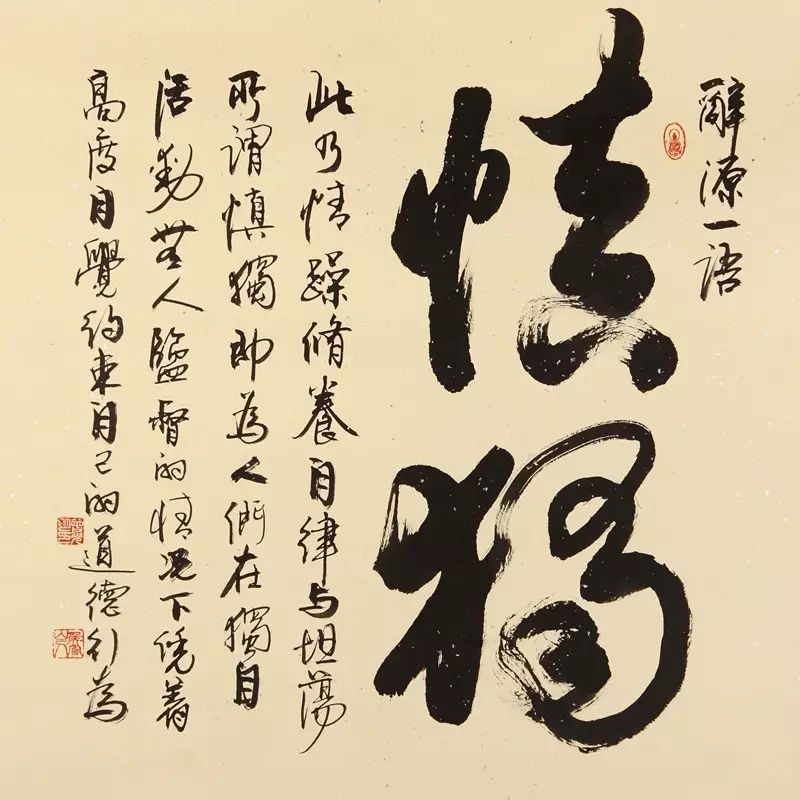 辭源一语
慎獨
此乃情躁脩養自律与坦蕩
所謂慎獨即為人們在獨自
活動無人監督的情况下凭着
高度自覺約束自己的道德行為